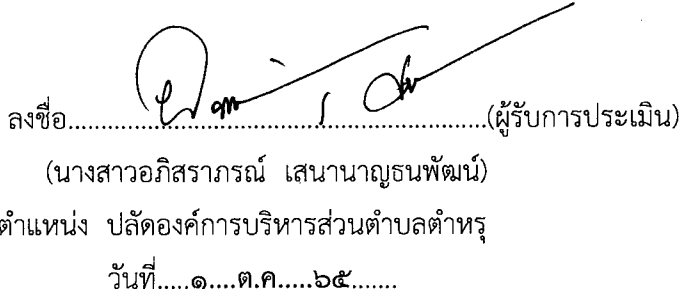 ลงชื่อ..........................................................(ผู้รับการประเมิน)
(นางสาวอภิสราภรณ์ เสนานาญธนพัฒน์)
ตำแหน่ง ปลัดองค์การบริหารส่วนตำบลตำหรุ
วันที่.....๑....ต.ค.....๖๕.......